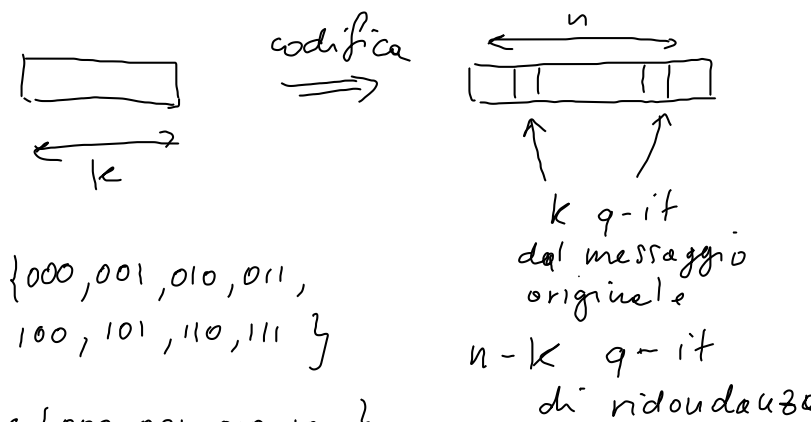 codifica
n
k
k q-it
dal messaggio
originale
{000, 001, 010, 011,
100, 101, 110, 111 }
n-k q-it
di ridondanza